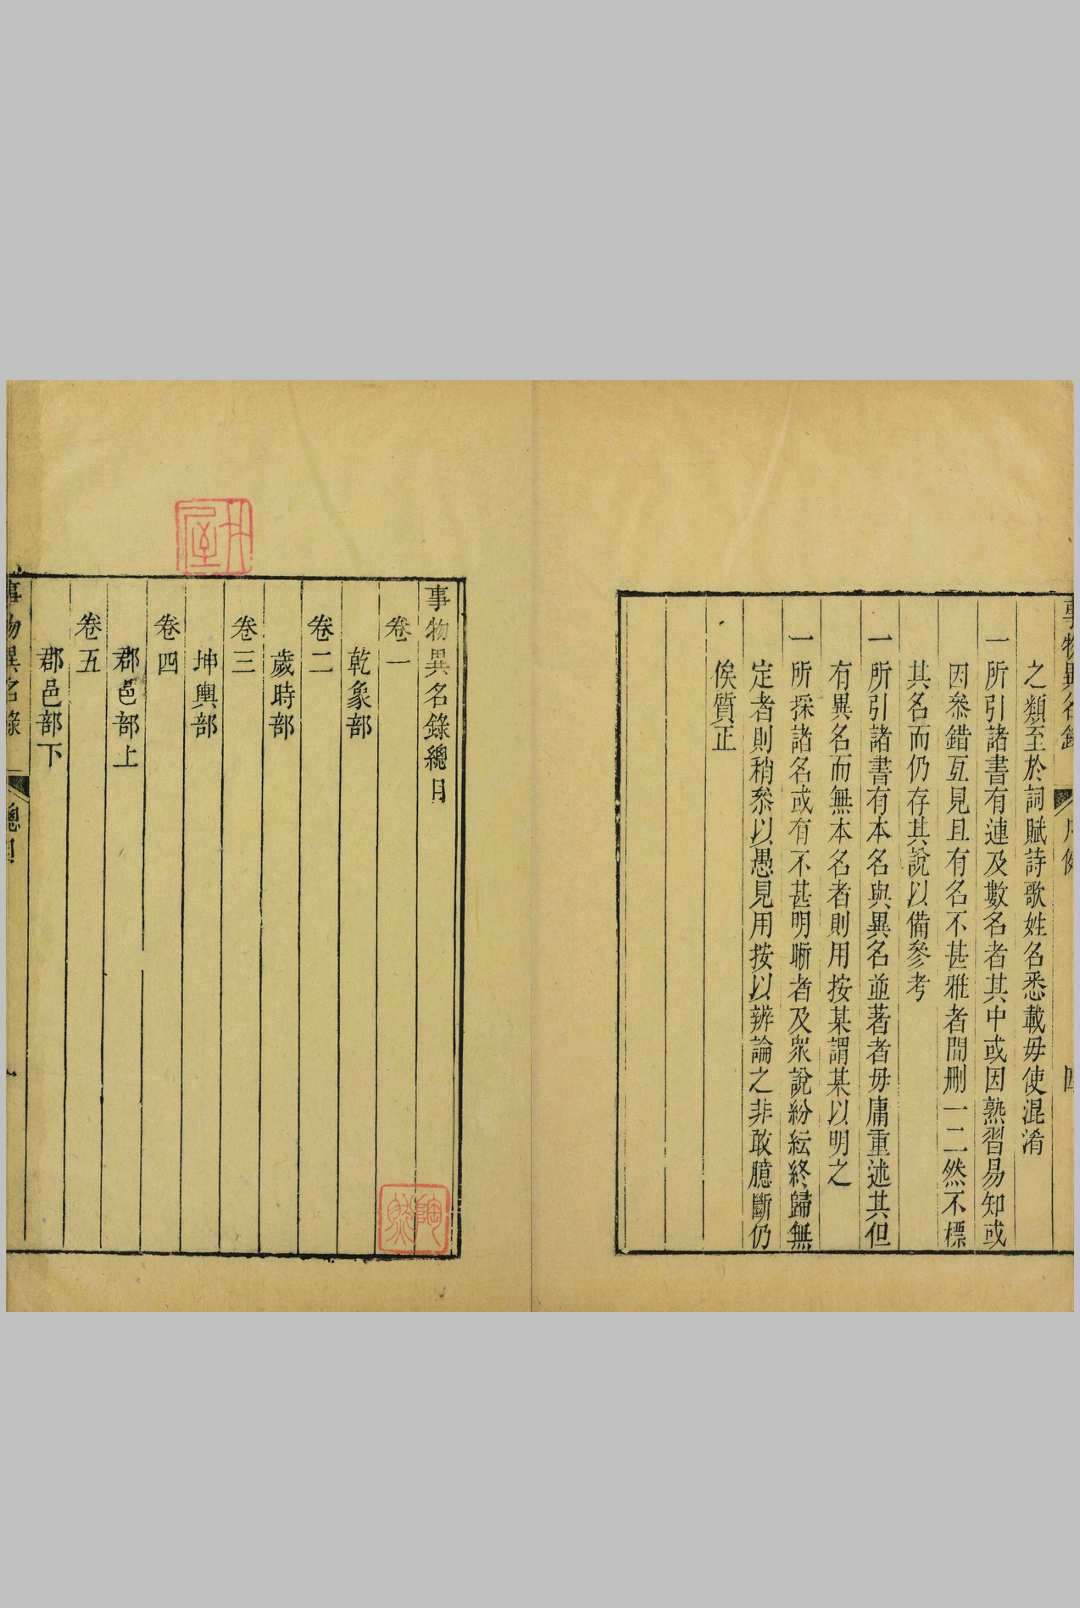 事物異名錄
之類至於詞賦詩歌姓名悉載毋使混淆
一所引諸書有連及數名者其中或因熟習易知或
因叅錯互見且有名不甚雅者間刪一二然不標
其名而仍存其說以備參考
一所引諸書有本名與異名並著者毋庸重述其但
有異名而無本名者則用按某謂某以明之
一所採諸名或有不甚明晰者及衆說紛紜終歸無
定者則稍叅以愚見用按以辨論之非敢臆斷仍
俟質正
事物異名錄總目
卷一
乾象部
卷二
歲時部
卷三
坤輿部
卷四
郡邑部上
卷五
郡邑部下
事物異名錄 總目